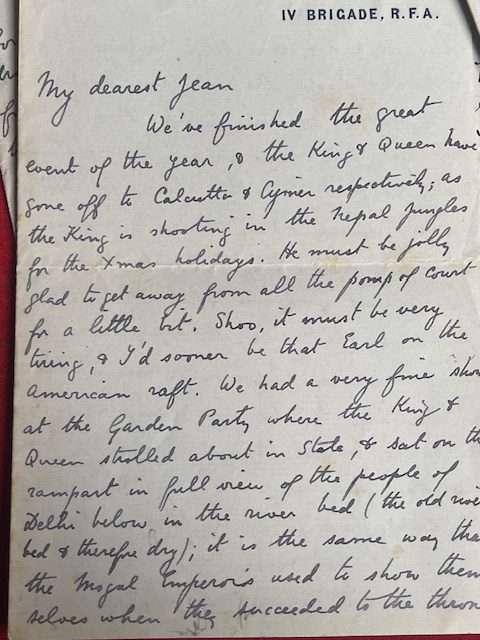 IV BRIGADE, R.F.A.
My dearest Jean
We've finished the great
event of the year, & the King & Queen have
gone off to Calcutta & respectively; as
the King is shooting in the Nepal Jungles
for the Xmas holidays. He must be jolly
glad to get away from all the pomp of court
for a little bit. Shoo, it must be very
tiring, & I'd sooner be that Earl on the
American raft. We had a very fine show
at the Garden Party where the King &
Queen strolled about in State, & sat on the
rampart in full view of the people of
Delhi below in the river bed (the old river
bed & therefore dry); it is the same way tha
the Mogul Emperors used to show them
selves when they succeeded to the thron